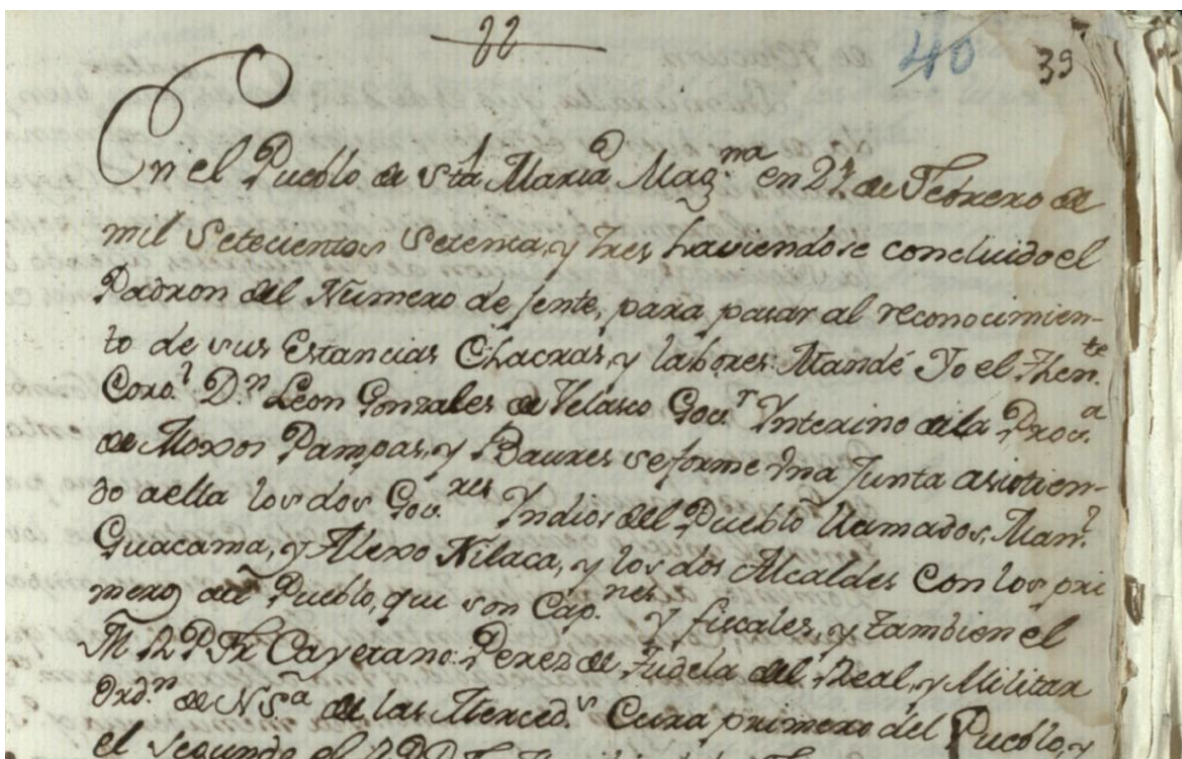 22
40 39
En el Pueblo de Sta. Maria Mag.na en 27 de Febrero de
mil Setecientos Setenta, y Tres haviendose concluido el
Padron del Numero de jente, para pasar al reconocimien-
to de sus Estancias Chacras, y labores: Mandé Yo el Then.te
Coro.l D.n Leon Gonzales de Velasco Gov.r Ynterino de la Prov.a
de Moxos Pampas, y Baures se forme una Junta asistien-
do a ella los dos Gov.res Yndios del Pueblo llamados, Man.l
Guacama, y Alexo Nilaca, y los dos Alcaldes Con los pri
meros del Pueblo, que son Cap.nes y fiscales, y tambien el
M R P Fr. Cayetano Perez de Tudela del Real, y Militar
Ord.n de N S.a de las Merced.s Cura primero del Pueblo, y
el segundo el